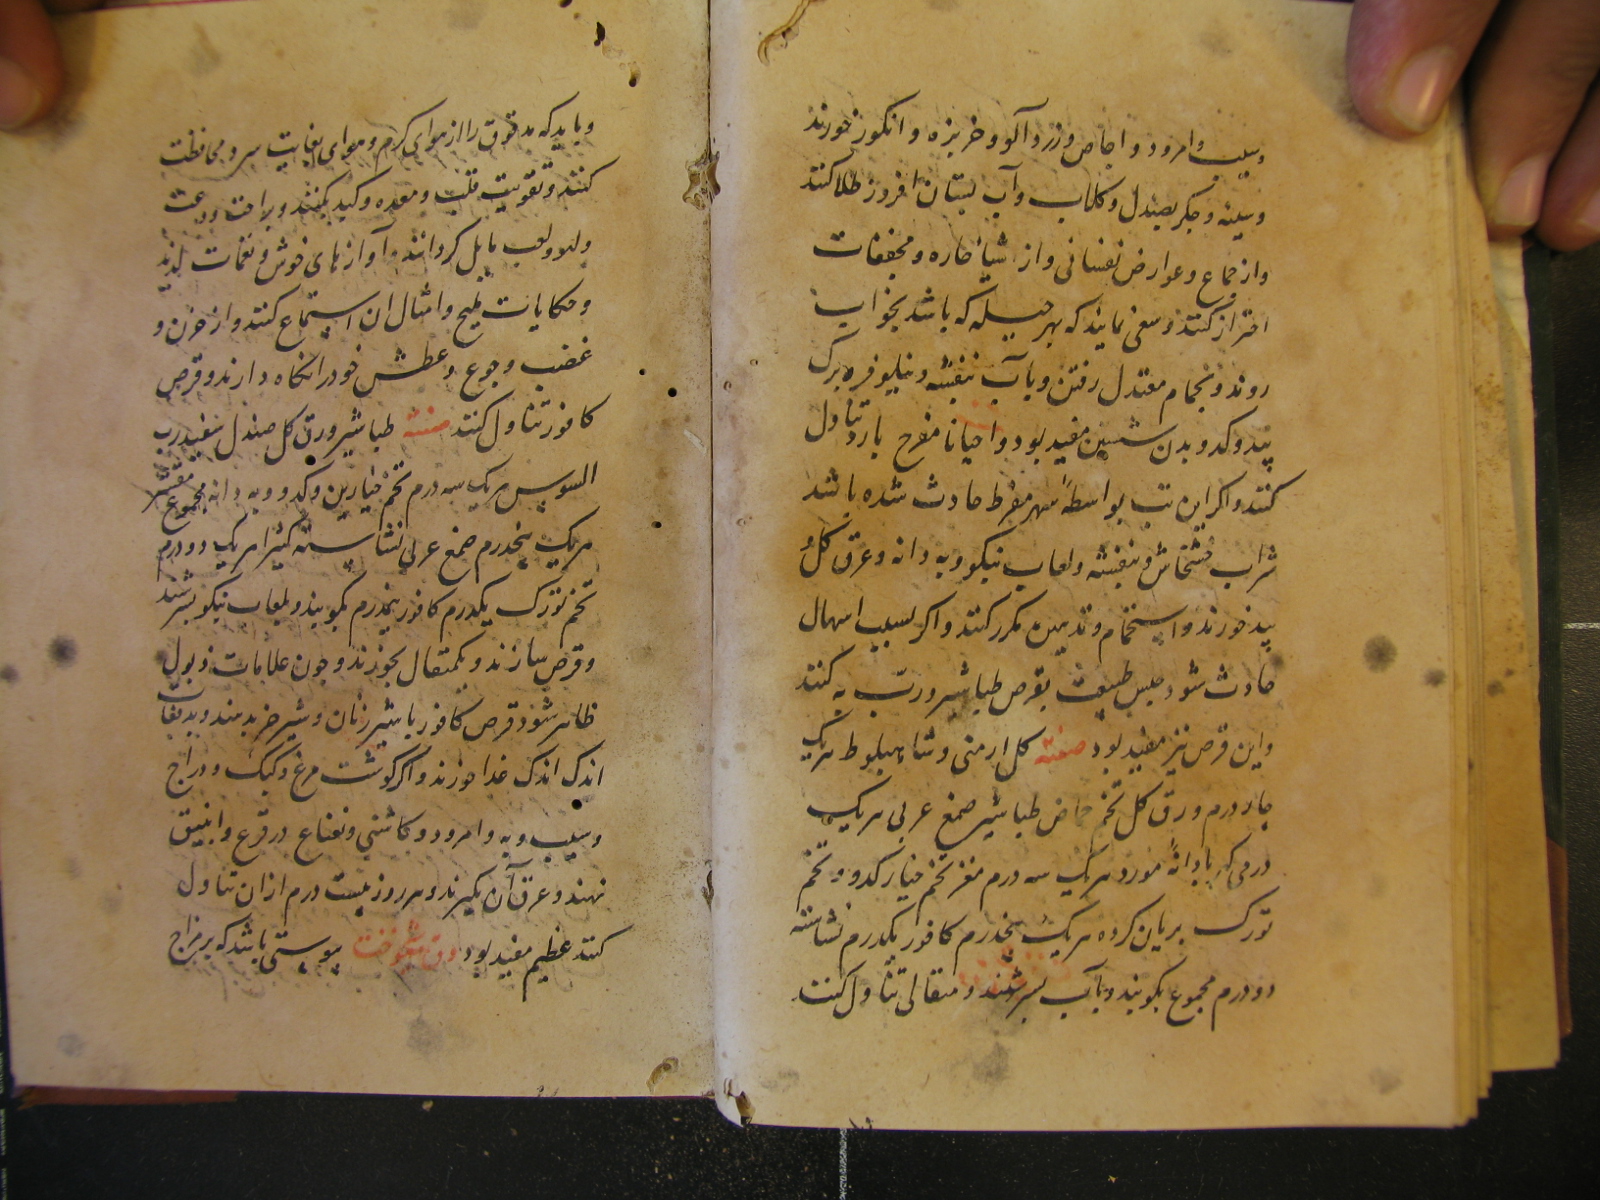 وسیب وامرود و اجاص وزردآلو و خربزه و انکور خورند
وسینه و جکر بصندل و کلاب و آب بستان افروز طلا کنند
واز جماع وعوارض نفسانی و از اشیاء حاره و مجففات
احتراز کنند و سعی نمایند که بهر حیله که باشد بخواب
روند و بحمام معتدل رفتن و بآب بنفشه و نیلوفر و برک
بید و کدو بدن شستن مفید بود و احیانا مفرح بارد تناول
کنند و اکر این تب بواسطهٔ سهر مفرط حادث شده باشد
شراب خشخاش و بنفشه و لعاب نیکو و به دانه و عرق کل و
بید خورند و استحمام و تدهین مکرر کنند و اکر بسبب اسهال
حادث شود حبس طبیعت بقرص طباشیر و رب به کنند
و این قرص نیز مفید بود صفته کل ارمنی و شاه بلوط هریک
چار درم ورق کل تخم حماض طباشیر صمغ عربی هریک
درمی کهربا دانهٔ مورد هریک سه درم مغز تخم خیار کدو و تخم
تورک بریان کرده هریک پنجدرم کافور یکدرم نشاسته
دو درم مجموع بکوبند و بآب بسرشند و مثقالی تناول کنند
و باید که مدقوق را از هوای کرم و هوای بغایت سرد محافظت
کنند و تقویت قلب و معده و کبد بکنند و براحت و دعت
و لهو و لعب مایل کردانند و آوازهای خوش و نغمات لذیذ
و حکایات ملیح و امثال ان استماع کنند و از حزن و
غضب و جوع و عطش خود را نکاه دارند و قرص
کافور تناول کنند صفته طباشیر ورق کل صندل سفید رب
السوس هریک سه درم تخم خیارین و کدو و به دانه مقشر مجموع
هریک پنجدرم صمغ عربی نشاسته کتیرا هریک دو درم
تخم تورک یکدرم کافور نیمدرم بکوبند و بلعاب نیکو بسرشند
و قرص سازند و یکمثقال بخورند و چون علامات ذبول
ظاهر شود قرص کافور با شیر زنان و شیر خر بدهند و بدفعات
اندک اندک غذا خورند و اکر کوشت مرغ و کبک و دراج
و سیب و به و امرود و کاشنی و نعناع در قرع و انبیق
نهند و عرق آن بکیرند و هر روز بیست درم از ان تناول
کنند عظیم مفید بود دق شیخوخت یبوستی باشد که بر مزاج